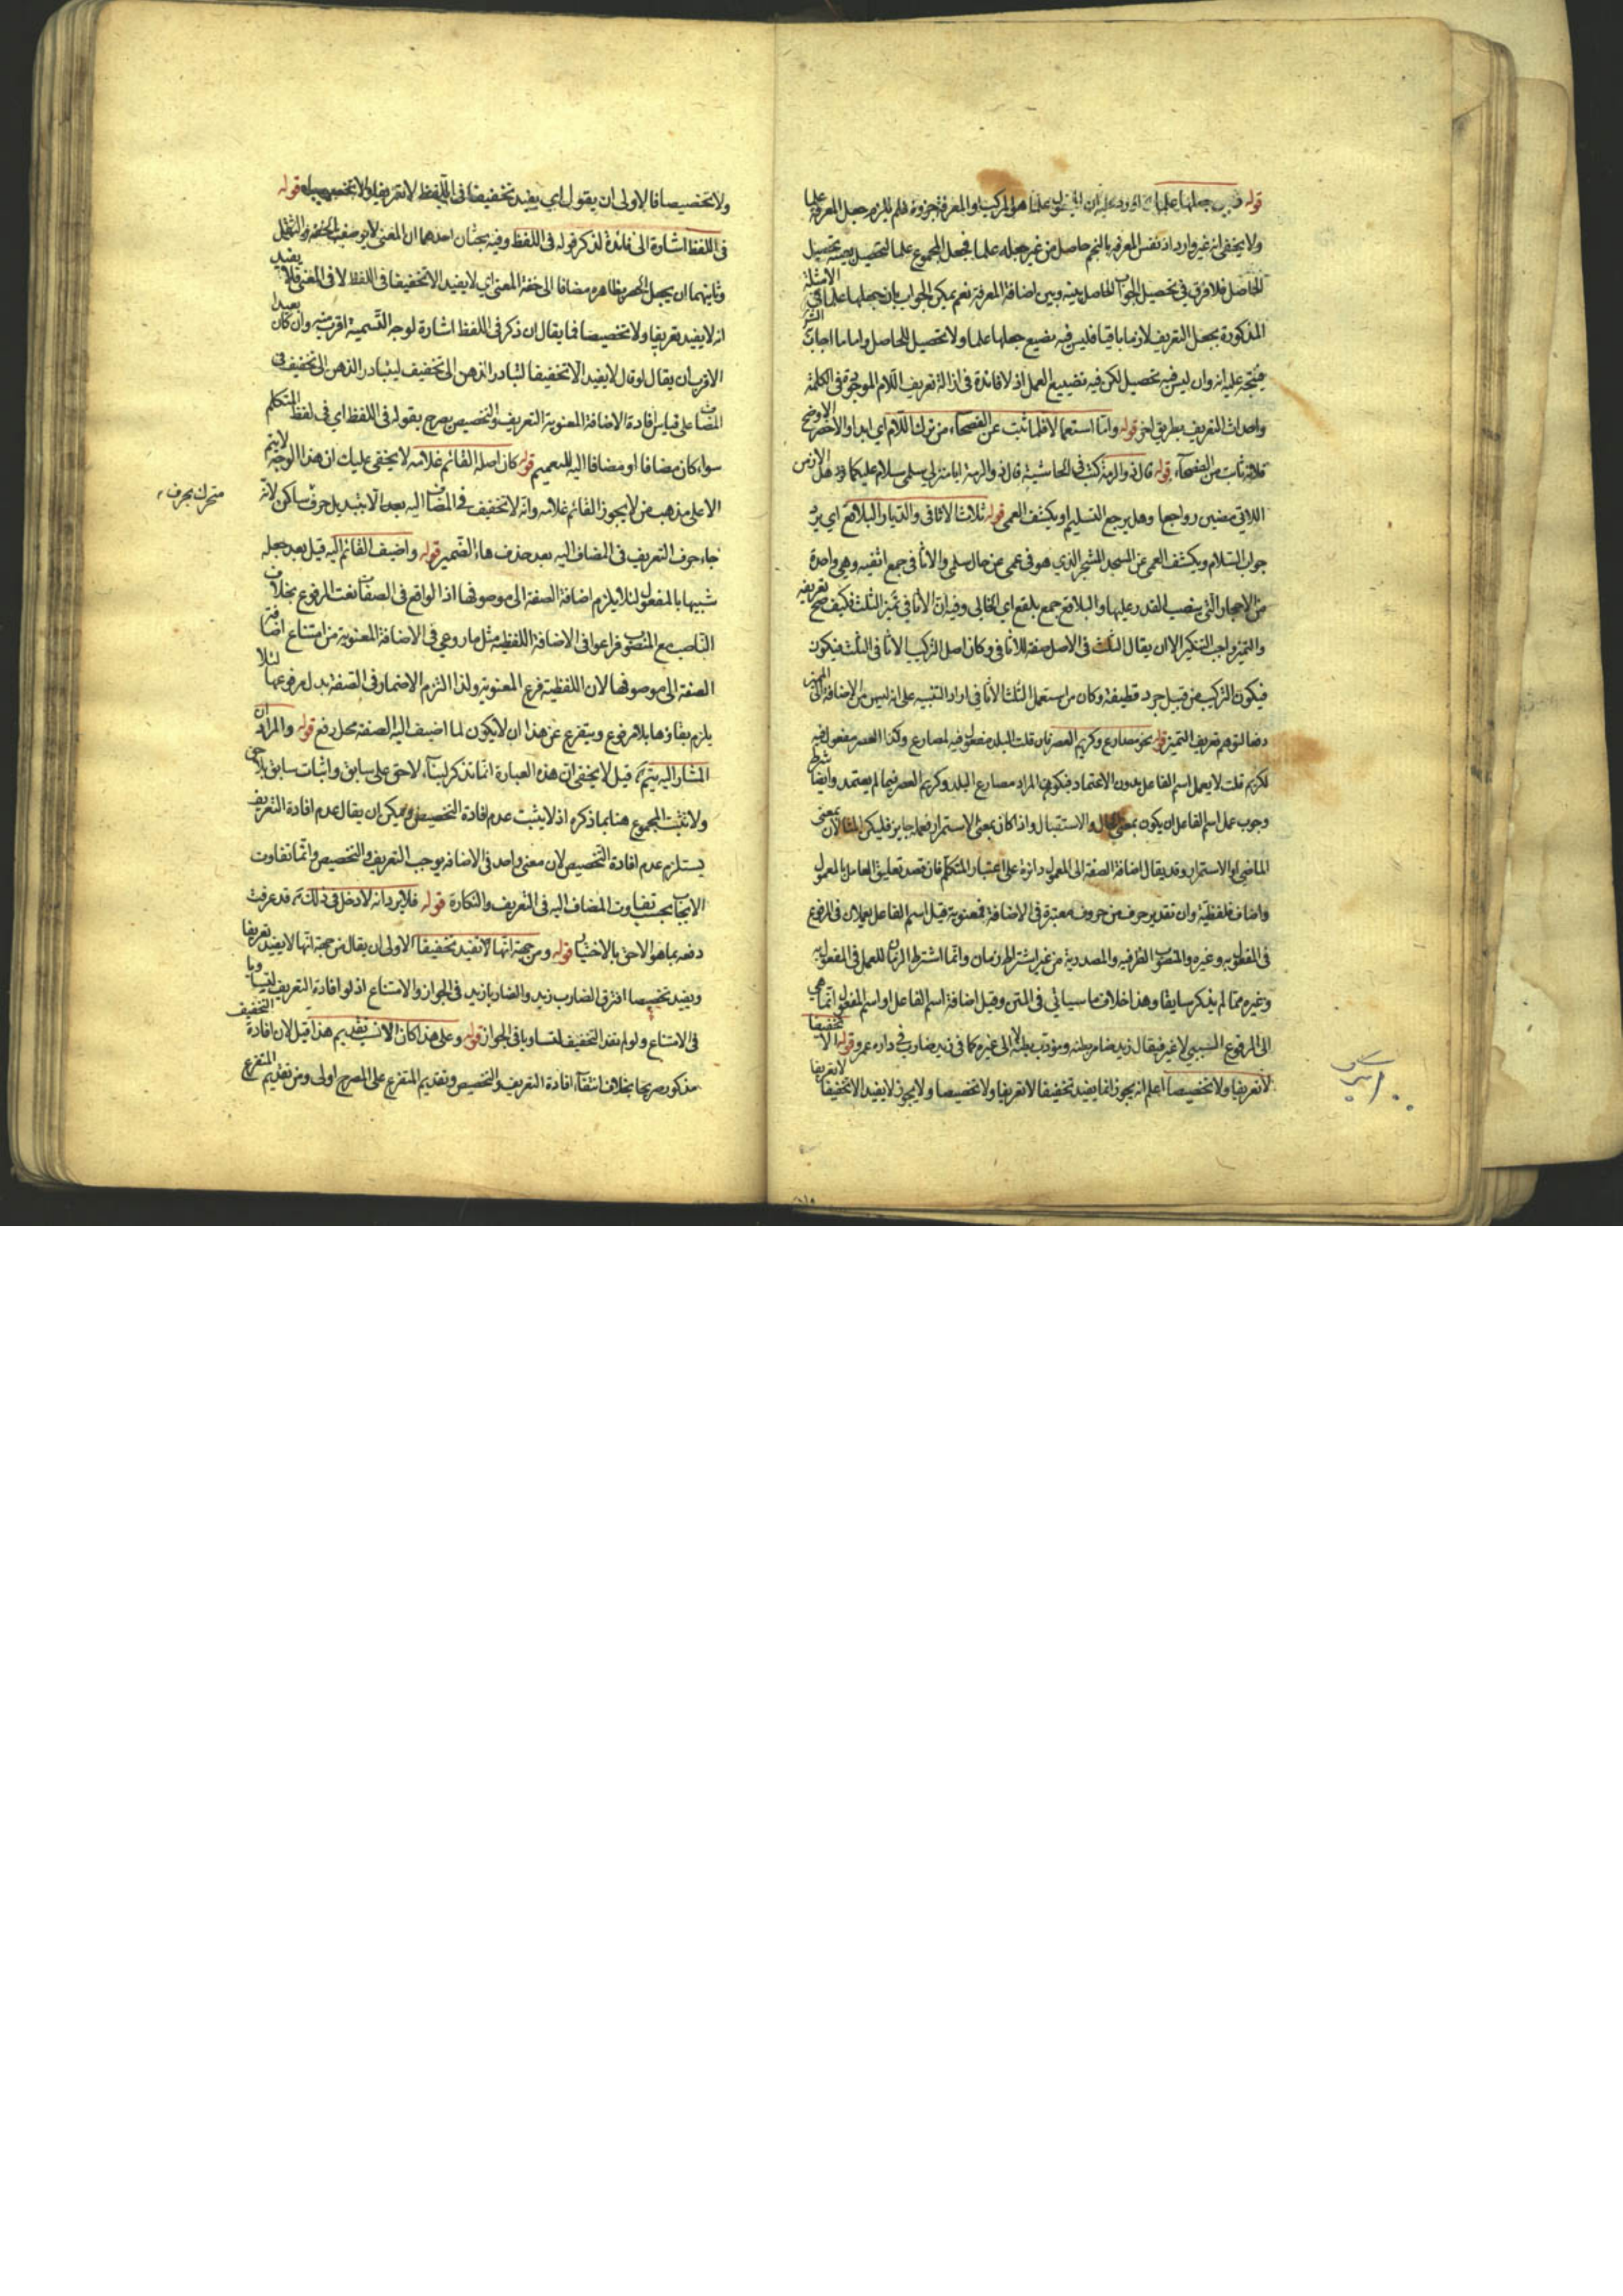 قوله جعلها علما
ولا يخفى انه غير وارد اذ نفس المعرفة بالنجم حاصل من غير جعله علما فجعل المجموع علما لتحصيل تحصيل
الحاصل فلا فرق في تحصيل الحاصل بينه وبين اضافة المعرفة نعم يمكن الجواب بان جعلها علما في الامثلة
المذكورة يجعل التعريف لازما باقيا فليس فيه تضييع جعلها علما ولا تحصيل للحاصل واما ما اجاب
عليه انه وان ليس فيه تحصيل لكن فيه تضييع العمل اذ لا فائدة في ازالة تعريف اللام الموجود في الكلمة
واحداث التعريف بطريق اخر قوله واما استعمالا فلما ثبت عن الفصحاء من ترك اللام اي
ثابت من الفصحاء قوله قال ذو الرمة كتب في الحاشية قال ذو الرمة ايا منزلي سلمى سلام عليكما هل الازمن
اللاتي مضين رواجع وهل يرجع التسليم او يكشف العمى قوله ثلاث الاثافي والديار البلاقع اي يرد
جواب السلام ويكشف العمى عن الذي هو في عمى عن حال سلمى والاثافي جمع اثفيه وهي واحدة
من الاحجار التي ينصب القدر عليها والبلاقع جمع بلقع اي الخالي وفيه ان الاثافي تميز الثلث فكيف صح تعريفه
والتميز واجب التنكير الا ان يقال الثلث في الاصل صفة للاثافي وكان اصل التركيب الاثافي الثلث فيكون
فيكون التركيب من قبيل جرد قطيفة وكان من استعمل الثلث الاثافي اراد التنبيه على انه ليس من الاضافة الى
دفعا لتوهم تعريف التميز قوله نحو مصارع وكريم العصر فان قلت البلد مفعول فيه لمصارع وكذا العصر مفعول فيه
لكريم قلت لا يعمل اسم الفاعل بدون الاعتماد فيكون المراد مصارع البلد وكريم العصر فيما لم يعتمد وايضا شرط
وجوب عمل اسم الفاعل ان يكون بمعنى الحال والاستقبال واذا كان بمعنى الاستمرار فعمله جايز فليكن المثالان بمعنى
الماضي او الاستمرار وقد يقال اضافة الصفة الى المعمول دائرة على اعتبار المتكلم فان قصد تعليق العامل بالمعمول
واضاف فلفظية وان تقدير حرف من حروف معتبرة في الاضافة فمعنوية قيل اسم الفاعل يعملان في المرفوع
وغيره والمنصوب الظرفيه والمصدرية من غير اشتراط زمان وانما اشتراط الزمان للعمل في المفعول به
وغيره مما لم يذكر سابقا وهذا خلاف ما سيأتي في المتن وقيل اضافة اسم الفاعل او اسم المفعول انما هي
الى المرفوع السببي لا غير فيقال زيد ضامر بطنه ومؤدب لا الى غيره كما في زيد ضارب في داره عمرو قوله الا تخفيفا
لا تعريفا ولا تخصيصا اعلم انه يجوز انما يفيد تخفيفا لا تعريفا ولا تخصيصا ولا يجوز لا يفيد الا تخفيفا لا تعريفا
ولا تخصيصا فالاولى ان يقول اي يفيد تخفيفا في اللفظ لا تعريفا ولا تخصيصا قوله
في اللفظ اشارة الى فائدة لذكر قوله في اللفظ وفيه بحثان احدهما ان المعنى لا يوصف بالخفة والثقل
وثانيهما ان يجعل الحصر بظاهره مضافا الى خفة المعنى اي لا يفيد الا تخفيفا في اللفظ لا في المعنى فلا يفيد
انه لا يفيد تعريفا ولا تخصيصا فما يقال ان ذكر في اللفظ اشارة لوجه التسمية اقرب منه وان كان بعيدا
الاقرب ان يقال لو قال لا يفيد الا تخفيفا لتبادر الذهن الى تخفيف ليتبادر الذهن الى تخفيف في
المضاف على قياس افادة الاضافة المعنوية التعريف والتخصيص صرح بقوله في اللفظ اي في لفظ المتكلم
سواء كان مضافا او مضافا اليه للتعميم قوله كان اصله القائم غلامه لا يخفى عليك ان هذا الوجه لا يتم
الا على مذهب من لا يجوز القائم غلامه وانه لا تخفيف في المضاف اليه بعد الا بتبديل حرف ساكن لانه
متحرك بحرف
جاء حرف التعريف في المضاف اليه بعد حذف هاء الضمير قوله واضيف القائم اليه قيل بعد جعله
شبيها بالمفعول لئلا يلزم اضافة الصفة الى موصوفها اذ الواقع في الصفات نعت المرفوع بخلاف
الناصب مع المنصوب فراعوا في الاضافة اللفظية مثل ما روعي في الاضافة المعنوية من امتناع اضافة
الصفة الى موصوفها لان اللفظية فرع المعنوية ولذا التزم الاضمار في الصفة بدل مرفوعها لئلا
يلزم بقاؤها بلا مرفوع ويتفرع عن هذا ان لا يكون لما اضيف اليه الصفة محل رفع قوله والمراد ان
المشار اليه يتم قيل لا يخفى ان هذه العبارة انما تذكر لبناء لاحق على سابق واثبات سابق بلاحق
ولا تثبت المجموع هنا بما ذكره اذ لا يثبت عدم افادة التخصيص ويمكن ان يقال عدم افادة التعريف
يستلزم عدم افادة التخصيص لان معنى واحد في الاضافة يوجب التعريف والتخصيص وانما تفاوت
الايجاب بحسب تفاوت المضاف اليه في التعريف والنكارة قوله فلا يرد انه لا دخل في ذلك قد عرفت
دفعه بما هو الاحق بالاختيار قوله ومن جهة انها لا تفيد تخفيفا الاولى ان يقال من جهة انها لا يفيد تعريفا
ويفيد تخصيصا افترق الضارب زيد والضاربا زيد في الجواز والامتناع اذ لو افادة التعريف
في الامتناع ولو لم تفد التخفيف لتساويا في الجواز قوله وعلى هذا كان الانسب تقديم هذا قيل لان افادة التخفيف
مذكور صريحا بخلاف انتفاء افادة التعريف والتخصيص وتقديم المتفرع على المصرح اولى ومن تقديم المتفرع